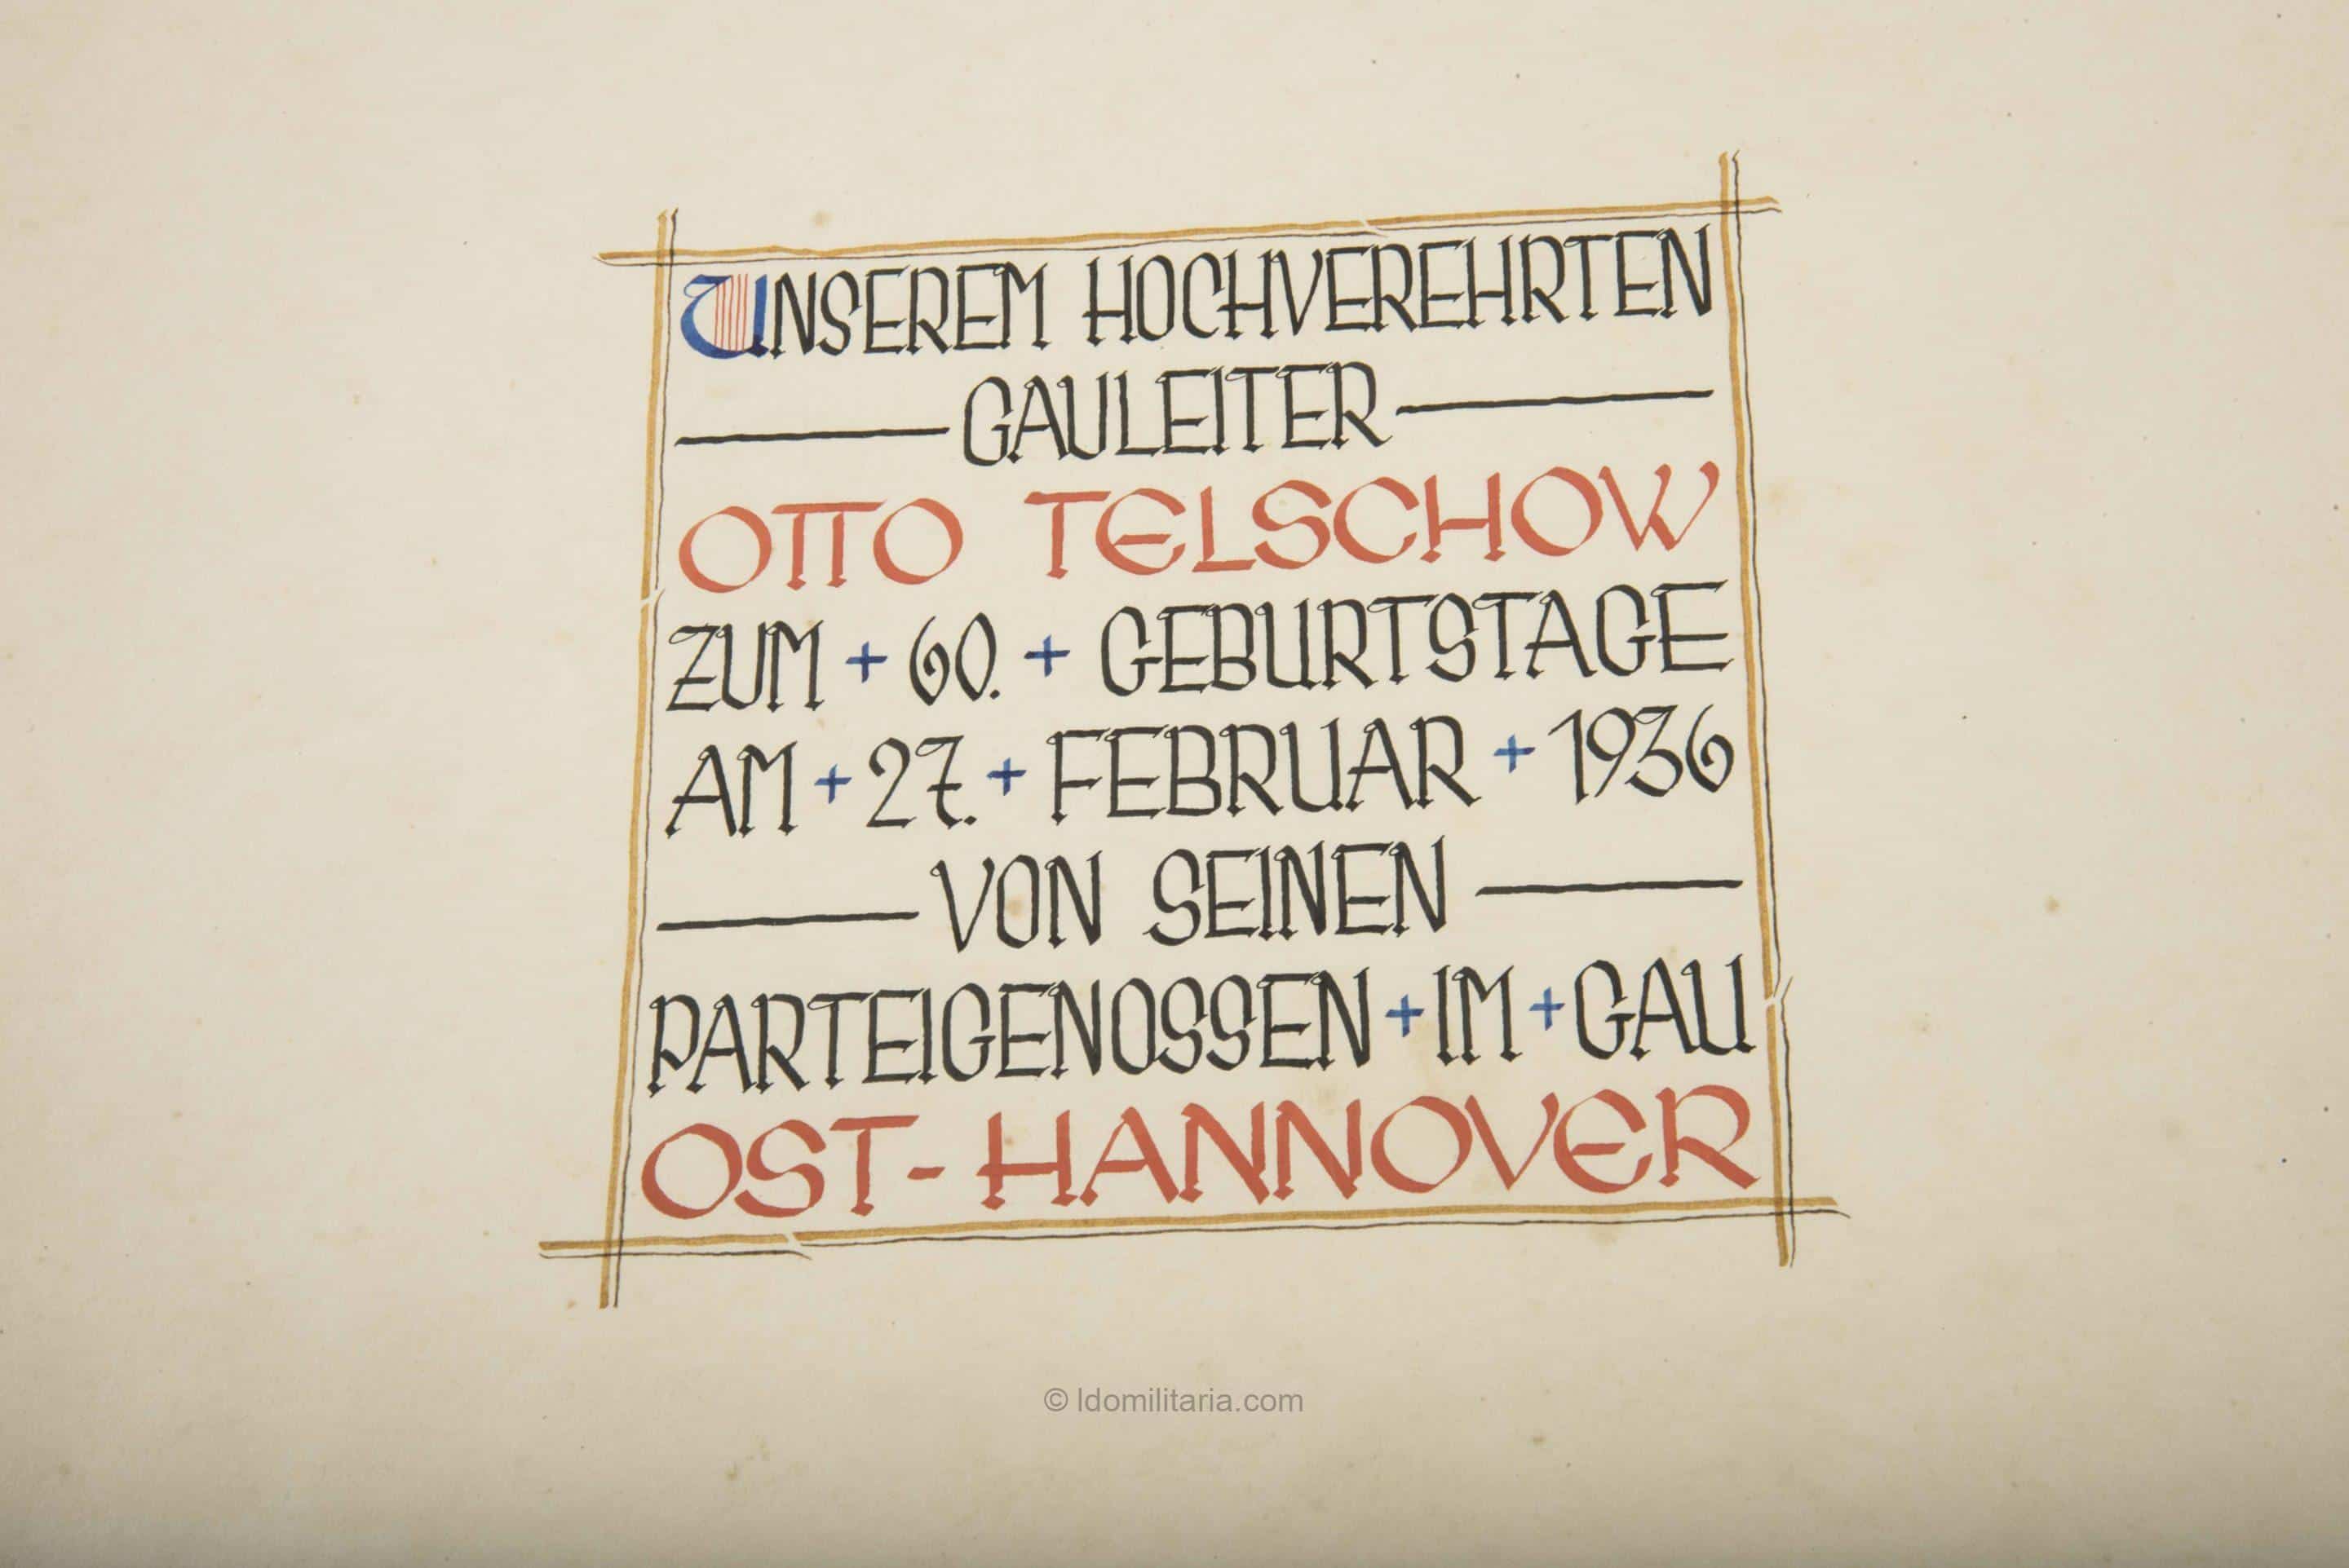 UNSEREM HOCHVEREHRTEN
GAULEITER
OTTO TELSCHOW
ZUM + 60. + GEBURTSTAGE
AM + 27. + FEBRUAR + 1936
VON SEINEN
PARTEIGENOSSEN + IM + GAU
OST-HANNOVER
© ldomilitaria.com